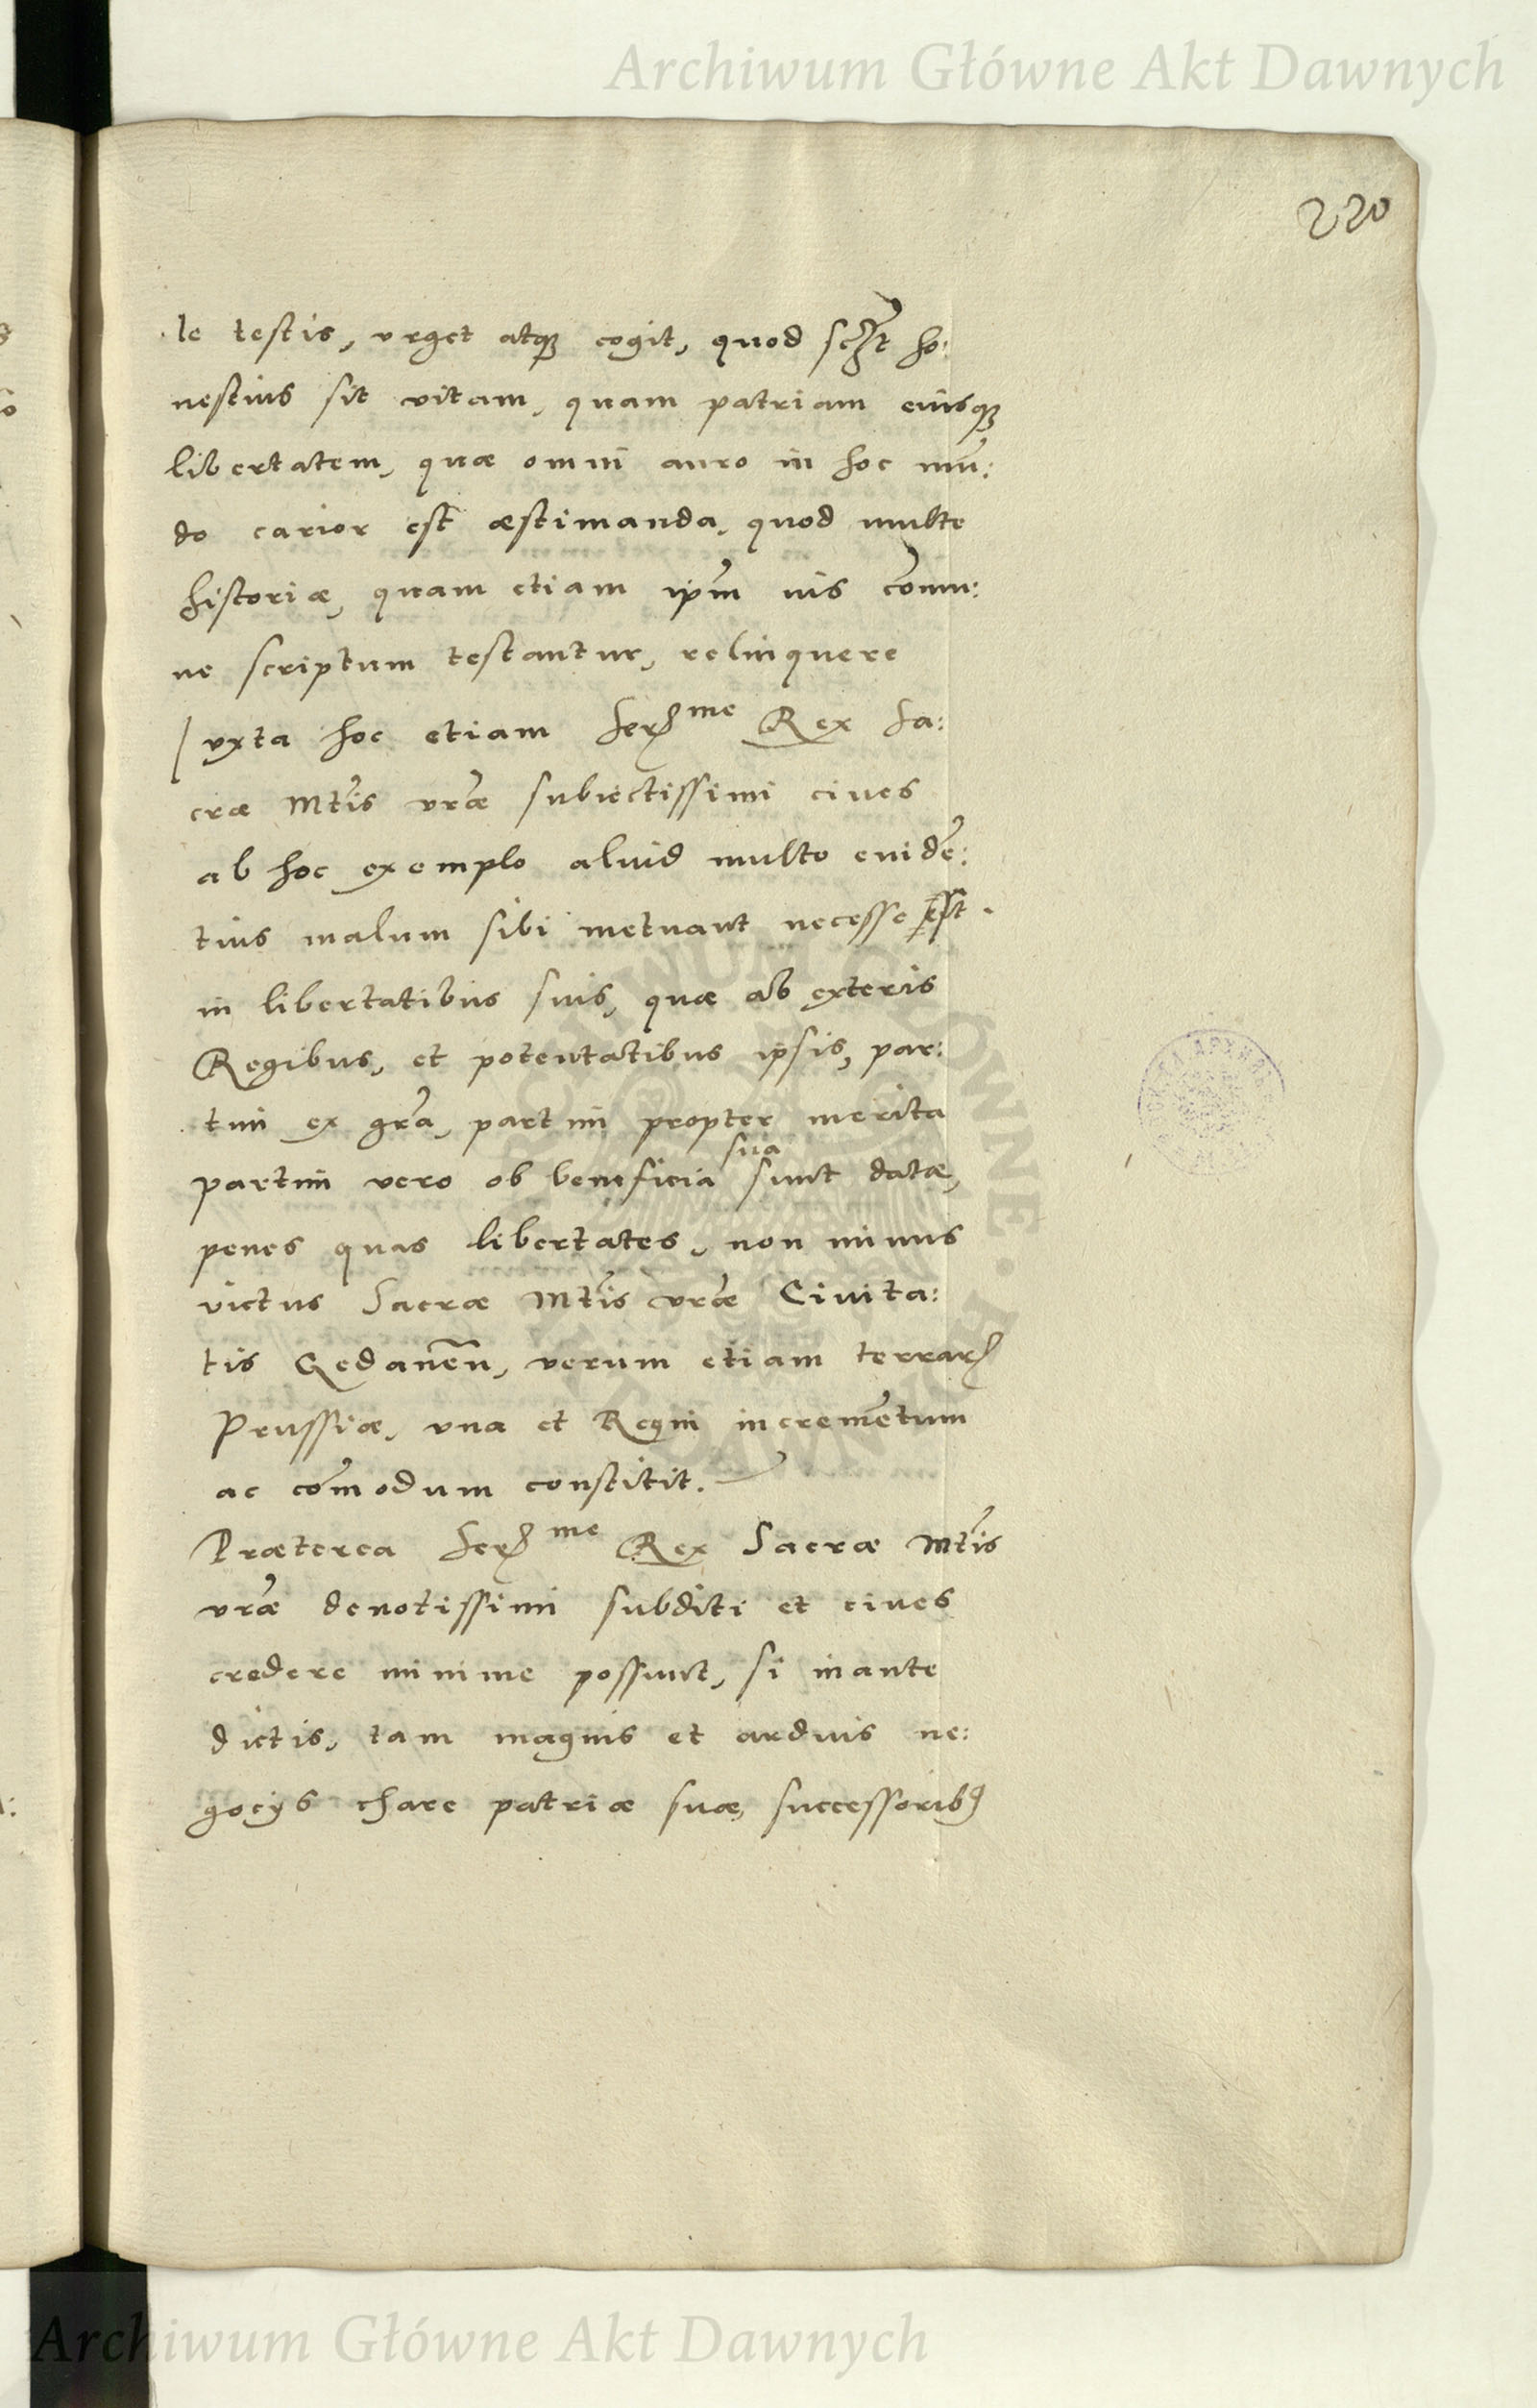 Archiwum Główne Akt Dawnych
220
le testis, vrget atq₃ cogit, quod ho:
nestius sit vitam, quam patriam eiusq₃
libertatem, quæ omni auro in hoc mū:
do carior est æstimanda, quod multe
historiæ, quam etiam ip̄m ius com̄u:
ne scriptum testantur, relinquere
Iuxta hoc etiam Ser.me Rex Sa:
cræ Mt̄is vr̄æ subiectissimi ciues
ab hoc exemplo aliud multo euidē:
tius malum sibi metuant necesse est.
in libertatibus suis, quæ ab exteris
Regibus, et potentatibus ipsis, par:
tim ex gr̄a, partim propter merita
sua
partim vero ob beneficia sunt datæ,
penes quas libertates, non minus
victus Sacræ Mt̄is vr̄æ Ciuita:
tis Gedaneñ, verum etiam terrarꝫ
Prussiæ, vna et Regni incremētum
ac com̄odum constitit.
Præterea Ser.me Rex Sacræ Mt̄is
vr̄æ deuotissimi subditi et ciues
credere minime possunt, si in ante
dictis, tam magnis et arduis ne:
gocijs chare patriæ suæ, successorib9
Archiwum Główne Akt Dawnych